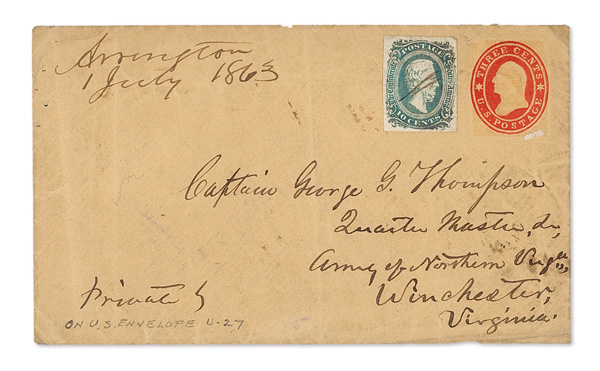 Arrington
1 July 1863
POSTAGE
The Confederate States America
10 CENTS
THREE CENTS
U.S. POSTAGE
Captain George G. Thompson
Quarter Master,
Army of Northern
Winchester,
Virginia.
Private
ON U.S. ENVELOPE U-27